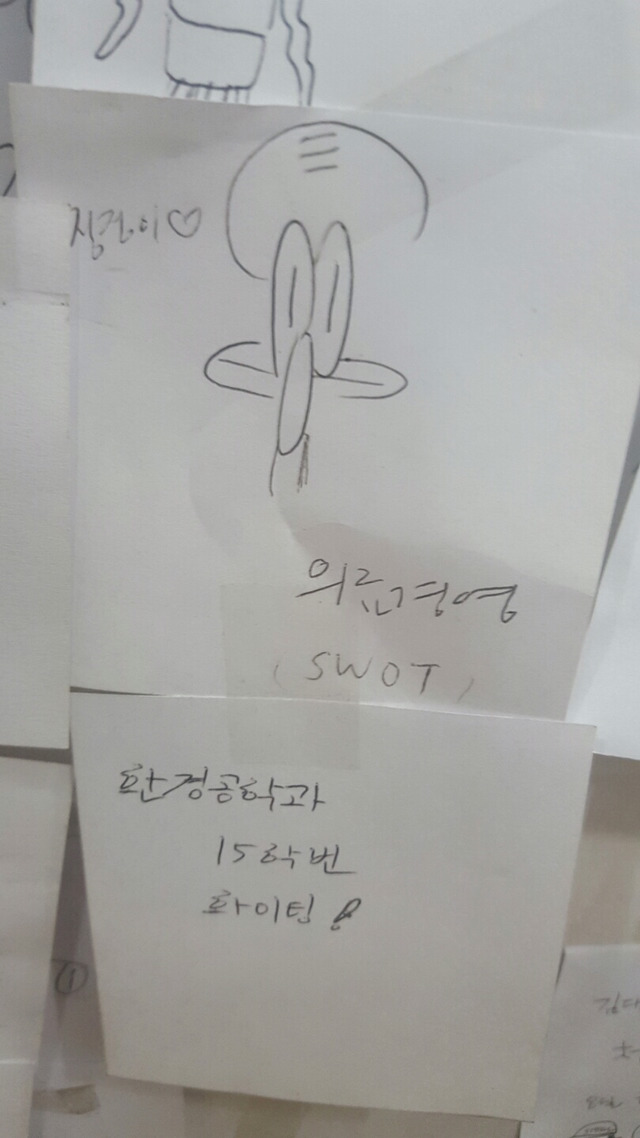 징징이♡
의료경영
(SWOT)
환경공학과
15학번
화이팅!
①
김다